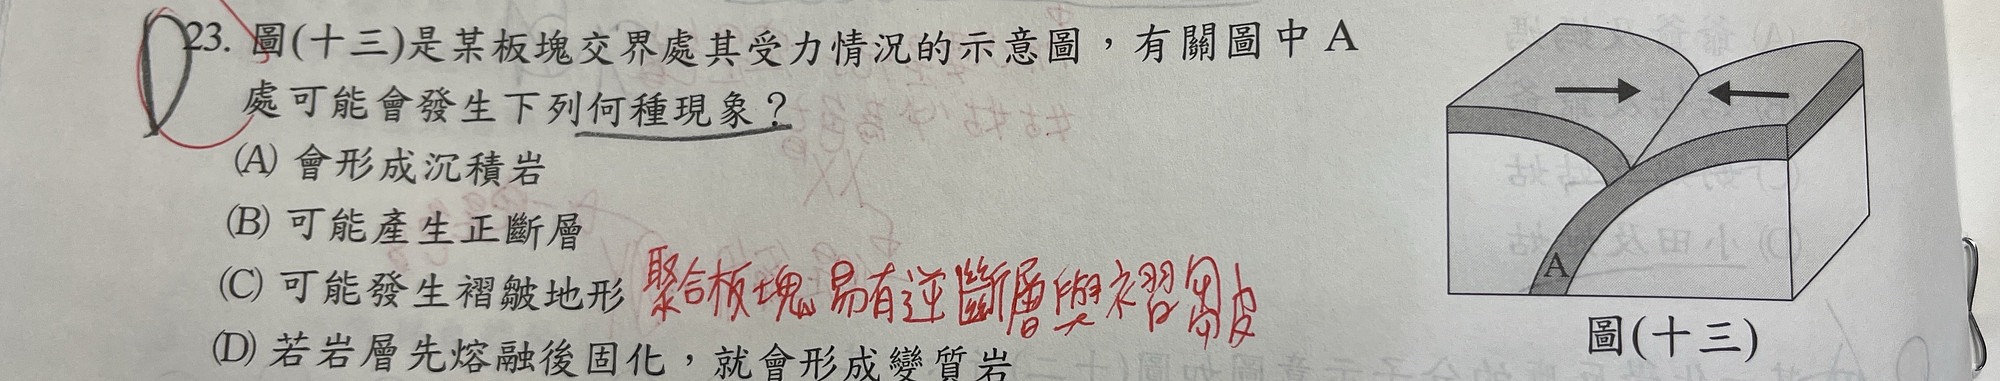 23. 圖(十三)是某板塊交界處其受力情況的示意圖，有關圖中A
處可能會發生下列何種現象？
(A) 會形成沉積岩
(B) 可能產生正斷層
(C) 可能發生褶皺地形 聚合板塊易有逆斷層與褶皺
(D) 若岩層先熔融後固化，就會形成變質岩
A
圖(十三)